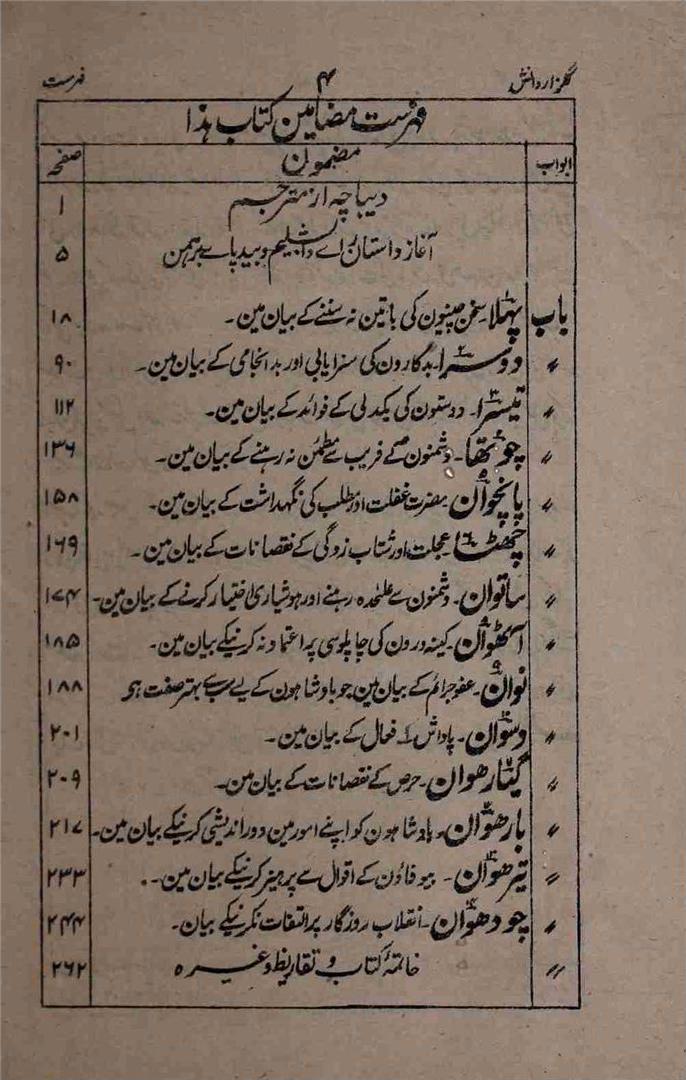 گلزار دانش ۴ فہرست
فہرست مضامین کتاب ہذا
ابواب مضمون صفحہ
دیباچہ از مترجم ۱
آغاز داستان رائے دابشلیم و بید پائے برہمن ۵
باب پہلا۔ سخن چینیون کی باتین نہ سننے کے بیان مین۔ ۱۸
〃 دوسرا۔ بدکارون کی سزایابی اور بد انجامی کے بیان مین۔ ۹۰
〃 تیسرا۔ دوستون کی یکدلی کے فوائد کے بیان مین۔ ۱۱۲
〃 چوتھا۔ دشمنون کے فریب سے مطمئن نہ رہنے کے بیان مین۔ ۱۳۶
〃 پانچوان۔ مضرت غفلت اور مطلب کی نگہداشت کے بیان مین۔ ۱۵۸
〃 چھٹا عجلت اور شتاب زدگی کے نقصانات کے بیان مین۔ ۱۶۹
〃 ساتوان۔ دشمنون سے علٰحدہ رہنے اور ہوشیاری اختیار کرنے کے بیان مین۔ ۱۷۴
〃 آٹھوان۔ کینہ ورون کی چاپلوسی پر اعتماد نہ کرنیکے بیان مین۔ ۱۸۵
〃 نوان۔ عفو جرائم کے بیان مین جو بادشاہون کے لیے سب سے بہتر صفت ہو ۱۸۸
〃 دسوان۔ پاداش افعال کے بیان مین۔ ۲۰۱
〃 گیارھوان۔ حرص کے نقصانات کے بیان مین۔ ۲۰۹
〃 بارھوان۔ بادشاہون کو اپنے امور مین دور اندیشی کرنیکے بیان مین۔ ۲۱۷
〃 تیرھوان۔ بیوفاؤن کے اقوال سے پرہیز کرنیکے بیان مین۔ ۲۳۳
〃 چودھوان۔ انقلاب روزگار پر التفات نکرنیکے بیان۔ ۲۴۴
〃 خاتمۂ کتاب و تقاریظ وغیرہ ۲۶۲